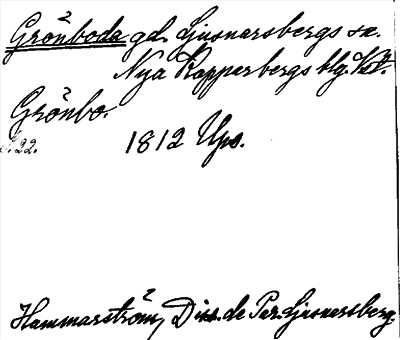 Grönboda gd. Ljusnarsbergs sn.
Nya Kopparbergs blg. Vstm.
Grönbo.
S. 22. 1812 Ups.
Hammarström, Diss. de Par. Ljusnarsberg.